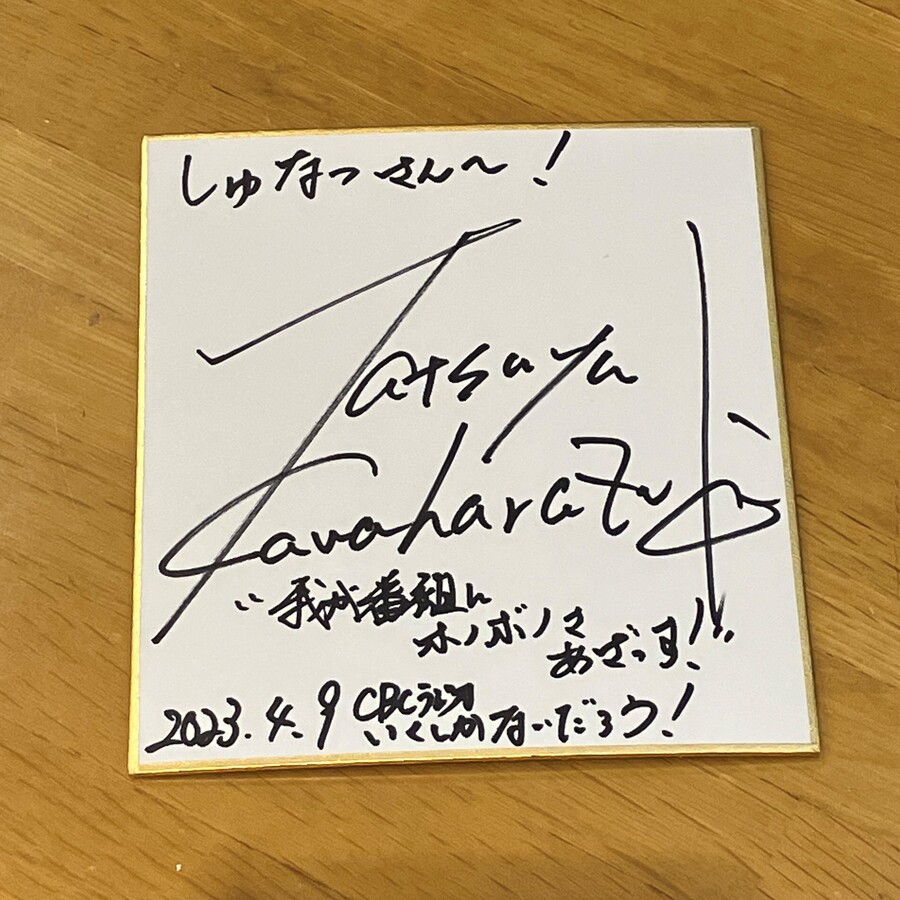 しゅなつさん〜!
Tatsuya
Kawaharazuka
"我が番組に
ホノボノさ
あざっす!"
2023.4.9 CBCラジオ
いくしかないだろう!